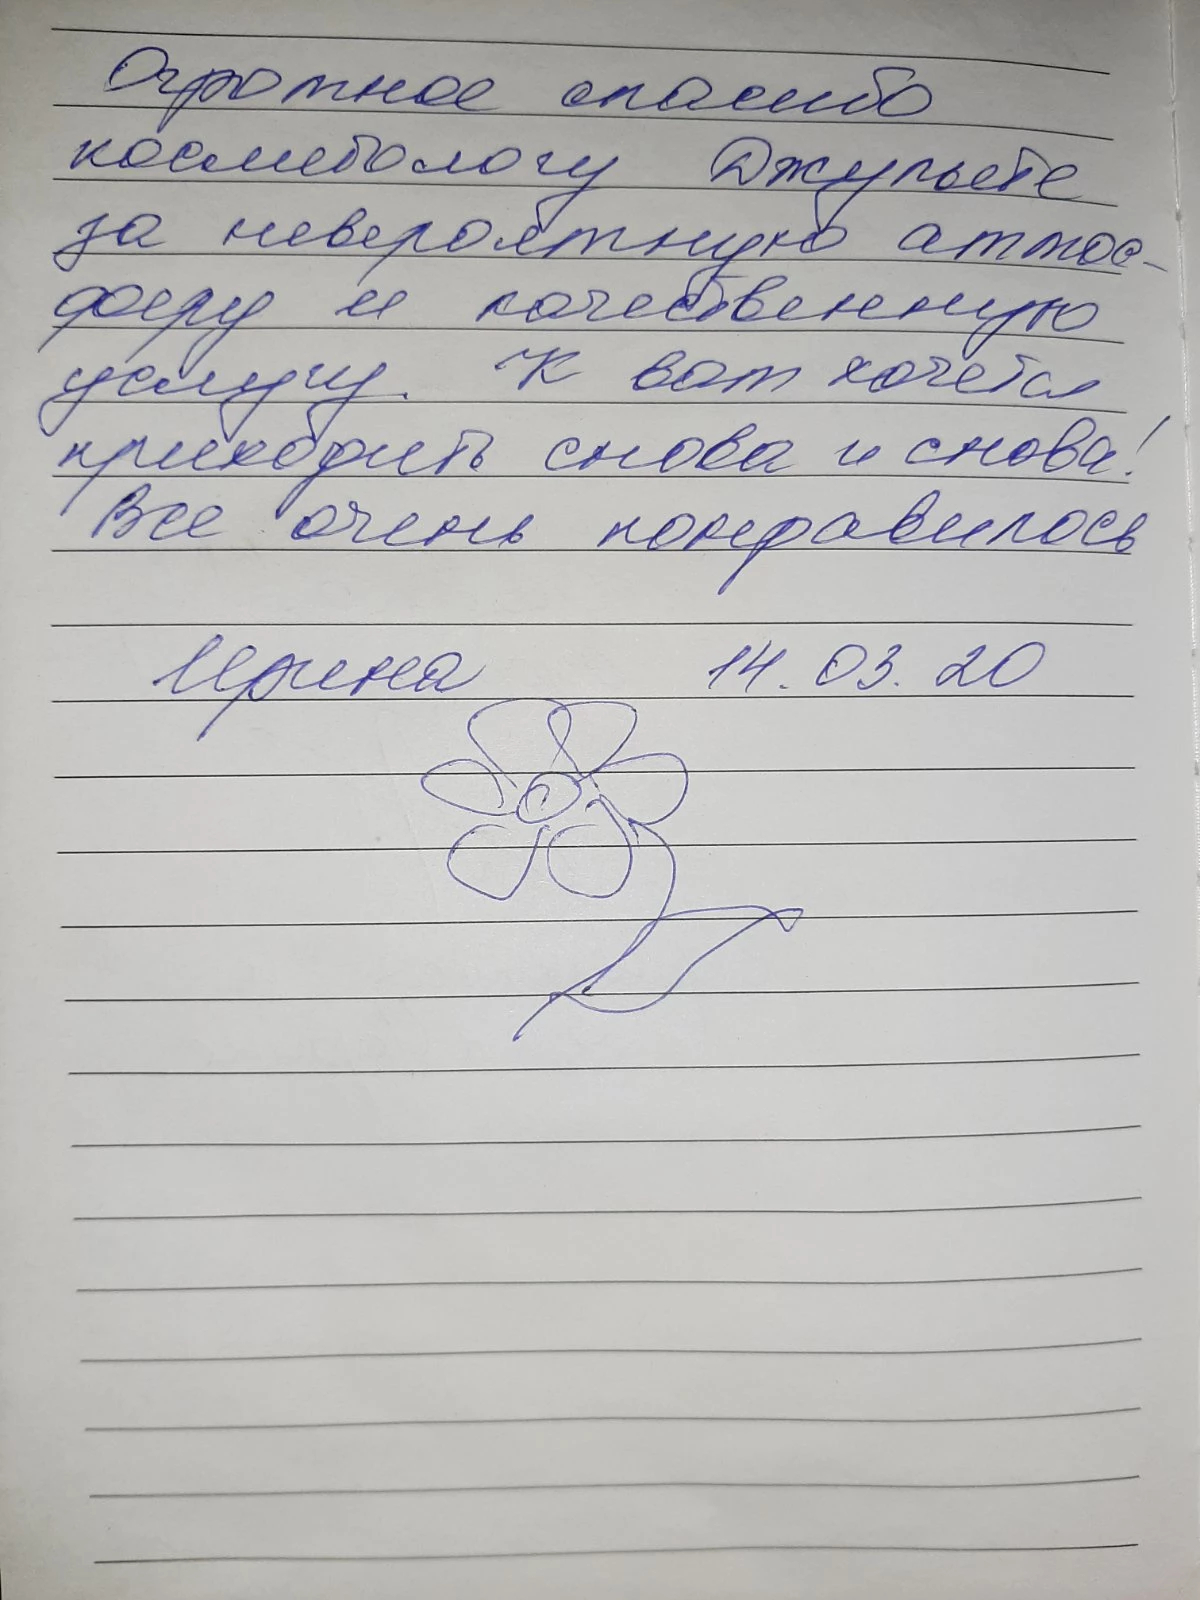 Огромное спасибо
косметологу Джульете
за невероятную атмос-
феру и качественную
услугу. К вам хочется
приходить снова и снова!
Все очень понравилось
Ирина 14.03.20